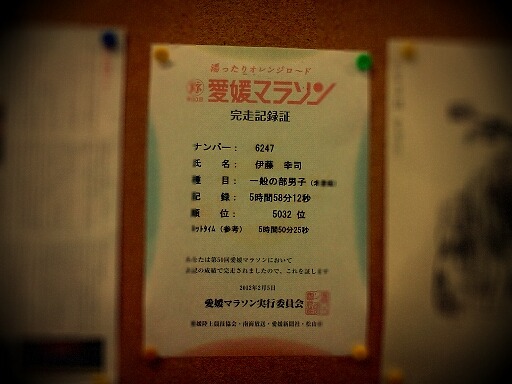 走ったりオレンジロード
愛媛マラソン
完走記録証
ナンバー： 6247
氏 名： 伊藤 幸司
種 目： 一般の部男子
記 録： 5時間58分12秒
順 位： 5032 位
ネットタイム（参考） 5時間50分25秒
あなたは第50回愛媛マラソンにおいて
上記の成績で完走されましたので、これを証します
2012年2月5日
愛媛マラソン実行委員会
愛媛陸上競技協会・南海放送・愛媛新聞社・松山市